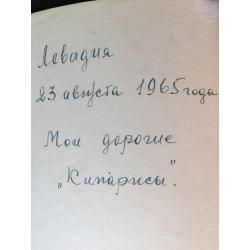 Левадия
23 августа 1965 года
Мои дорогие
„Кипарисы".